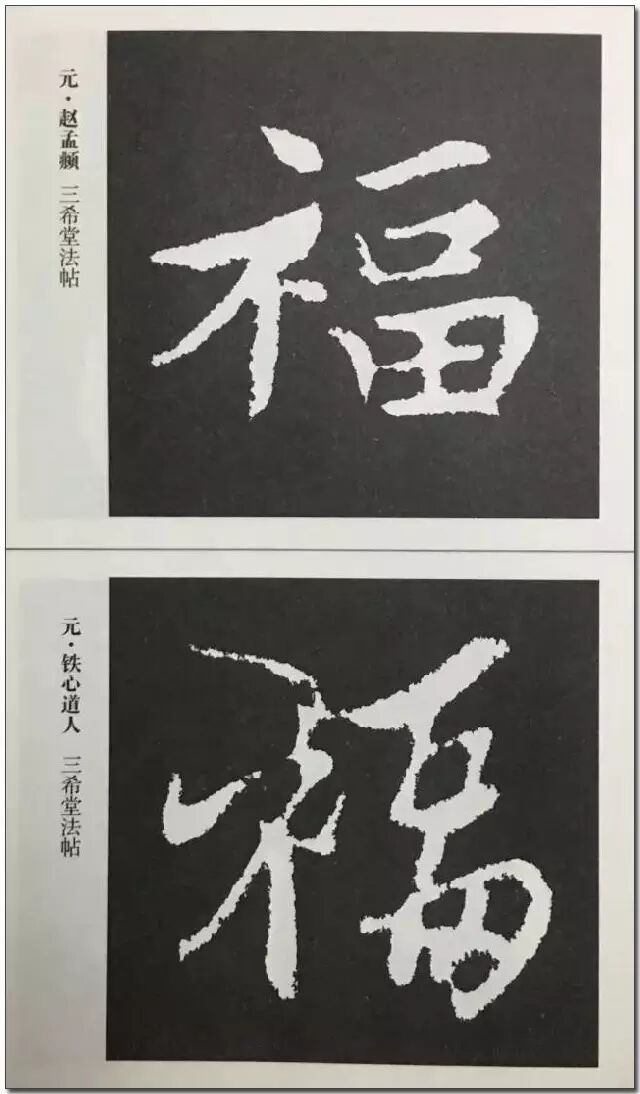 元·赵孟頫 三希堂法帖
福
元·铁心道人 三希堂法帖
福